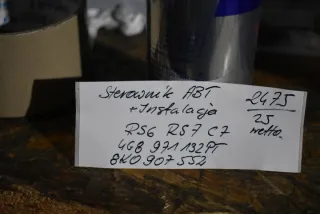 Sterownik ABT
+ Instalacja
RS6 RS7 C7
4G8 971 132PT
8K0 907 552
2475
25
netto.